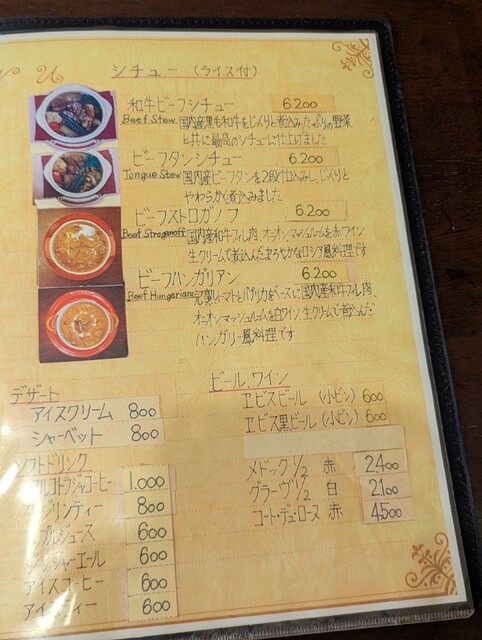 シチュー (ライス付)
和牛ビーフシチュー 6.200
Beef Stew 国内産黒毛和牛をじっくりと煮込みたっぷりの野菜
と共に最高のシチューに仕上げました
ビーフタンシチュー 6.200
Tongue Stew 国内産ビーフタンを2段仕込みし、じっくりと
やわらかく煮込みました
ビーフストロガノフ 6.200
Beef Stroganoff 国内産和牛フィレ肉、オニオン、マッシュルームを赤ワイン
生クリームで煮込んだまろやかなロシア風料理です
ビーフハンガリアン 6.200
Beef Hungarian 完熟トマトとパプリカをベースに国内産和牛フィレ肉、
オニオン、マッシュルームを白ワイン、生クリームで煮込んだ
ハンガリー風料理です
デザート
アイスクリーム 800
シャーベット 800
ソフトドリンク
1.000
ティー 800
プルジュース 600
ジンジャーエール 600
アイスコーヒー 600
アイスティー 600
ビール、ワイン
ヱビスビール (小ビン) 600
ヱビス黒ビール (小ビン) 600
メドック 1/2 赤 2400
グラーヴ 1/2 白 2100
コート・デュ・ローヌ 赤 4500